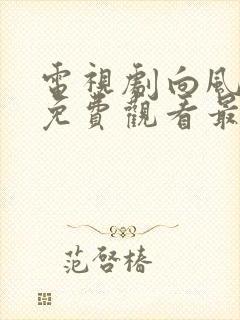 電視劇向風
免費觀看最
范啓椿